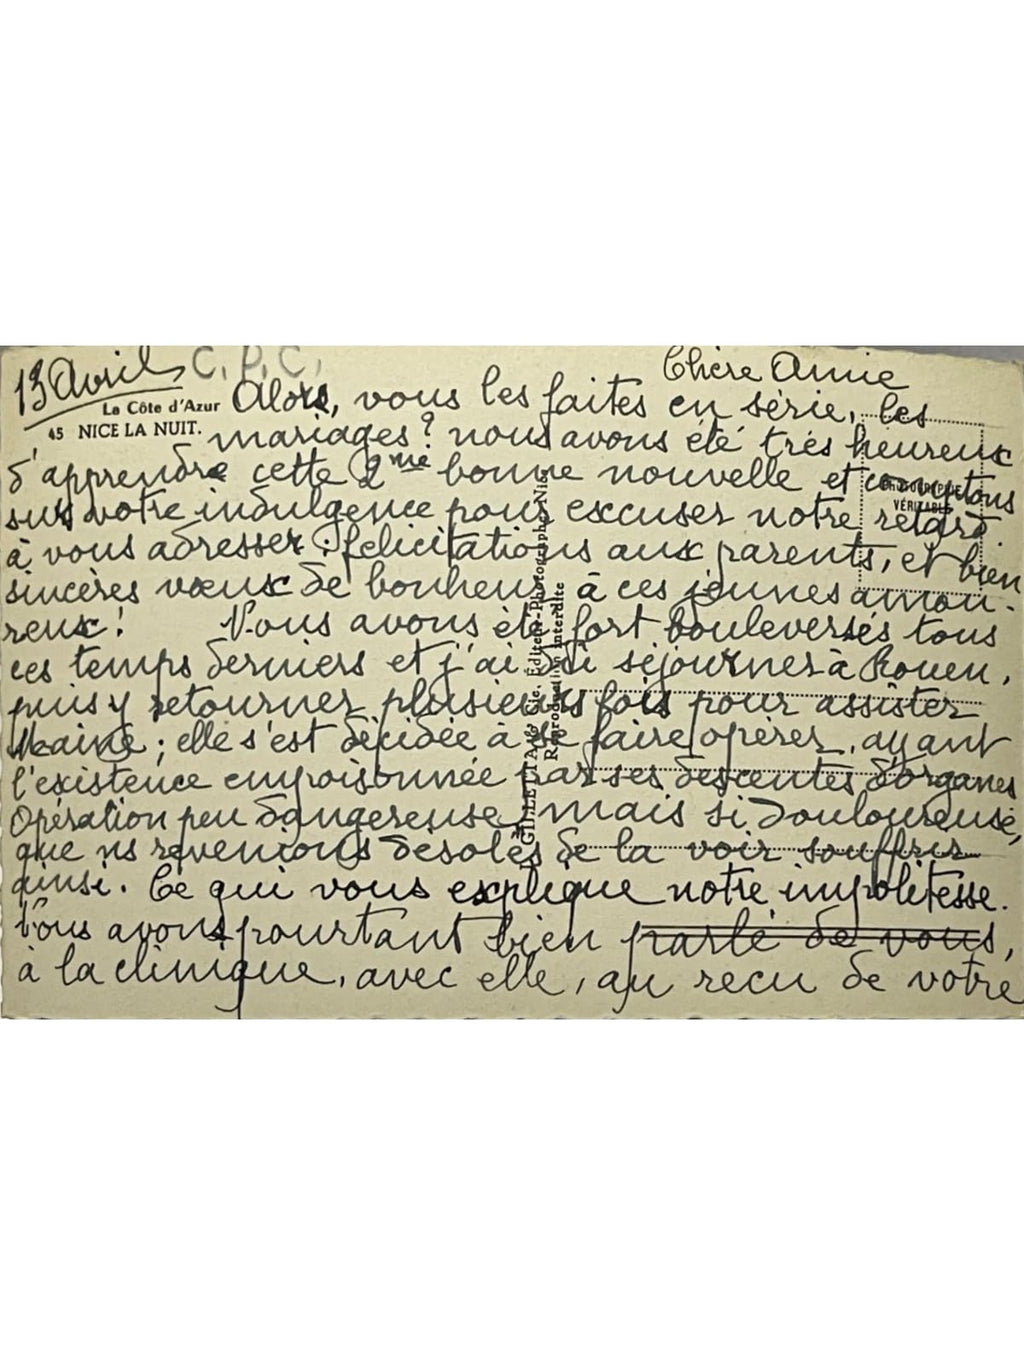 13 Avril C.P.C. Chère Amie
La Côte d'Azur
45 NICE LA NUIT.
Alors, vous les faites en série, les
mariages? nous avons été très heureux
d'apprendre cette 2me bonne nouvelle et comptons
sur votre indulgence pour excuser notre retard
à vous adresser : félicitations aux parents, et bien
sincères vœux de bonheur à ces jeunes amou-
reux! Nous avons été fort bouleversés tous
ces temps derniers et j'ai dû séjourner à Rouen,
puis y retourner plusieurs fois pour assister
; elle s'est décidée à se faire opérer, ayant
l'existence empoisonnée par ses descentes d'organes
Opération peu dangereuse, mais si douloureuse,
que ns revenions désolés de la voir souffrir
ainsi. Ce qui vous explique notre impolitesse.
Nous avons pourtant bien parlé de vous,
à la clinique, avec elle, au reçu de votre
PHOTOGRAPHIE
VÉRITABLE
GILLETTA & Cie, Éditeurs-Photographes, Nice
Reproduction interdite